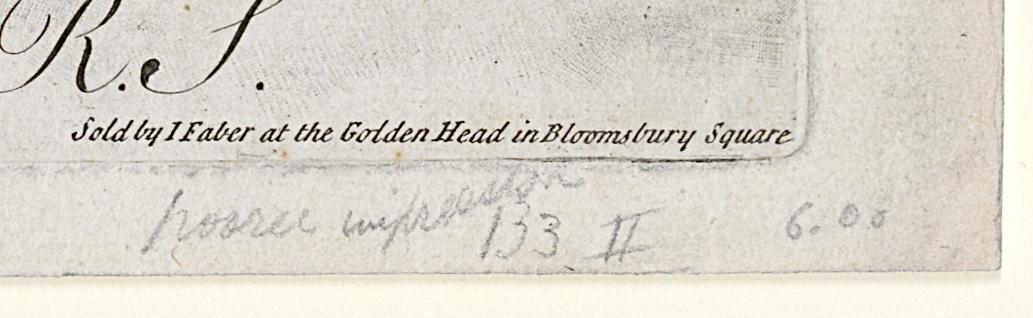 R.S.
Sold by I Faber at the Golden Head in Bloomsbury Square
poorer impression
133 II 6.00